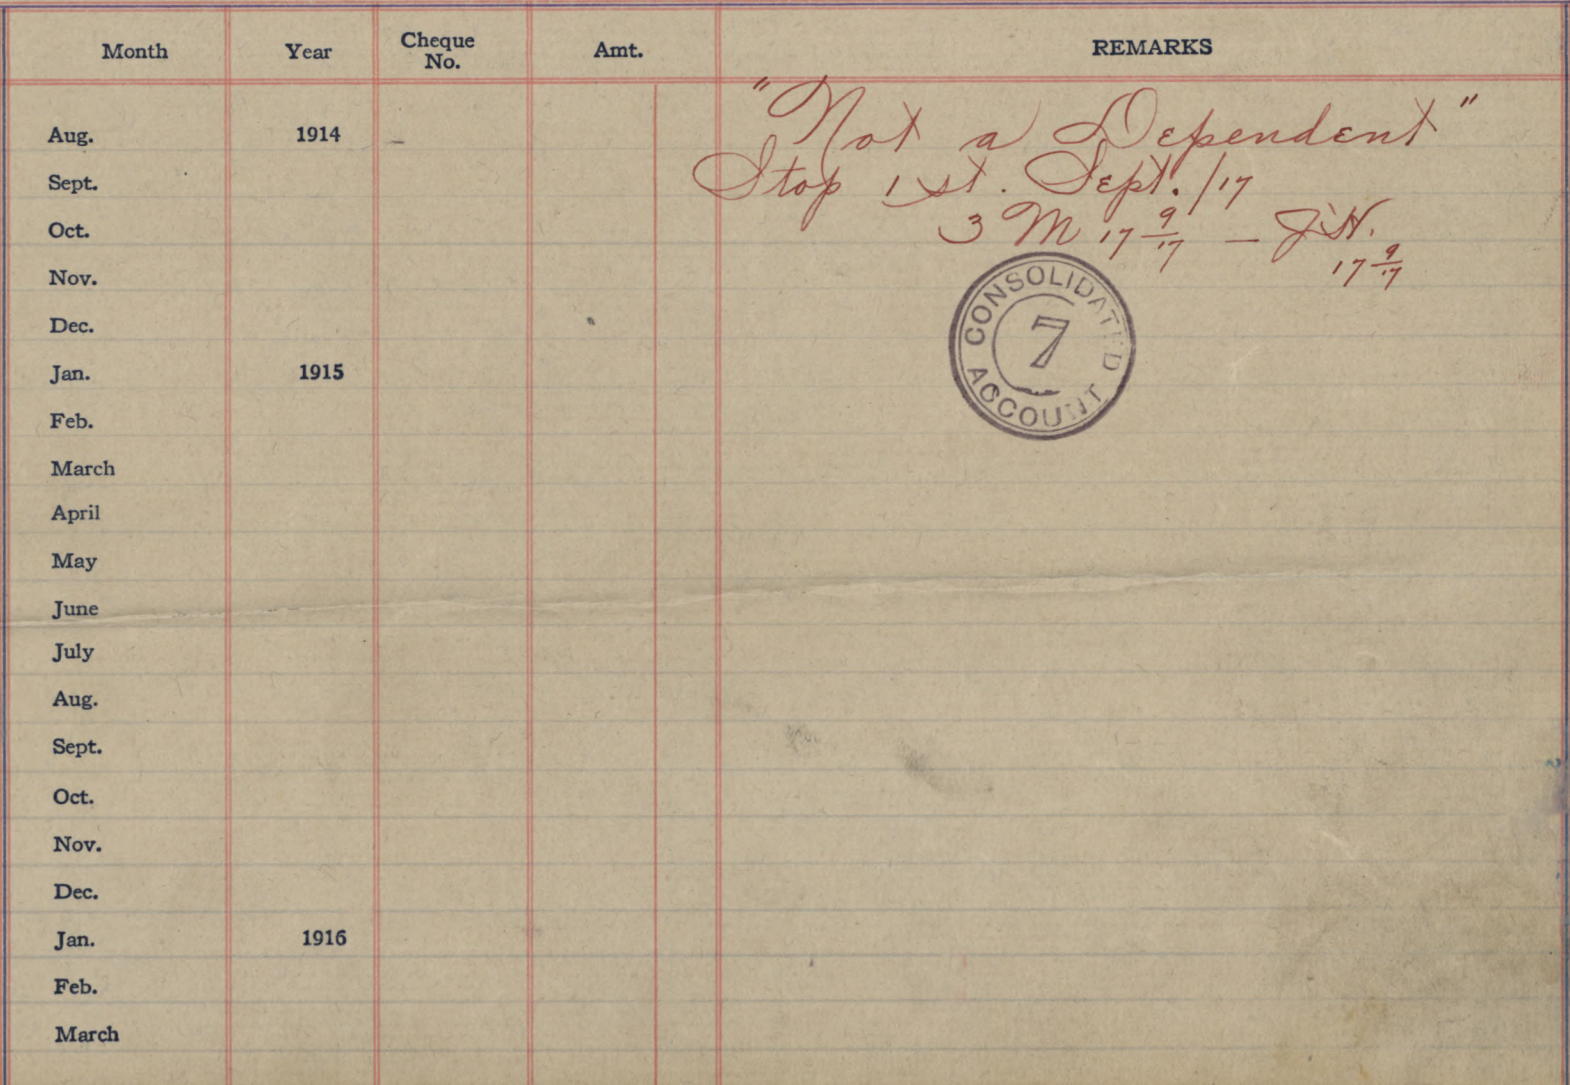 Month Year Cheque No. Amt. REMARKS
Aug. 1914 "Not a Dependent"
Sept. Stop 1st. Sept./17
Oct. 3 M 17 9/17 — J.H.
17 9/17
Nov.
CONSOLIDATED ACCOUNT
7
Dec.
Jan. 1915
Feb.
March
April
May
June
July
Aug.
Sept.
Oct.
Nov.
Dec.
Jan. 1916
Feb.
March